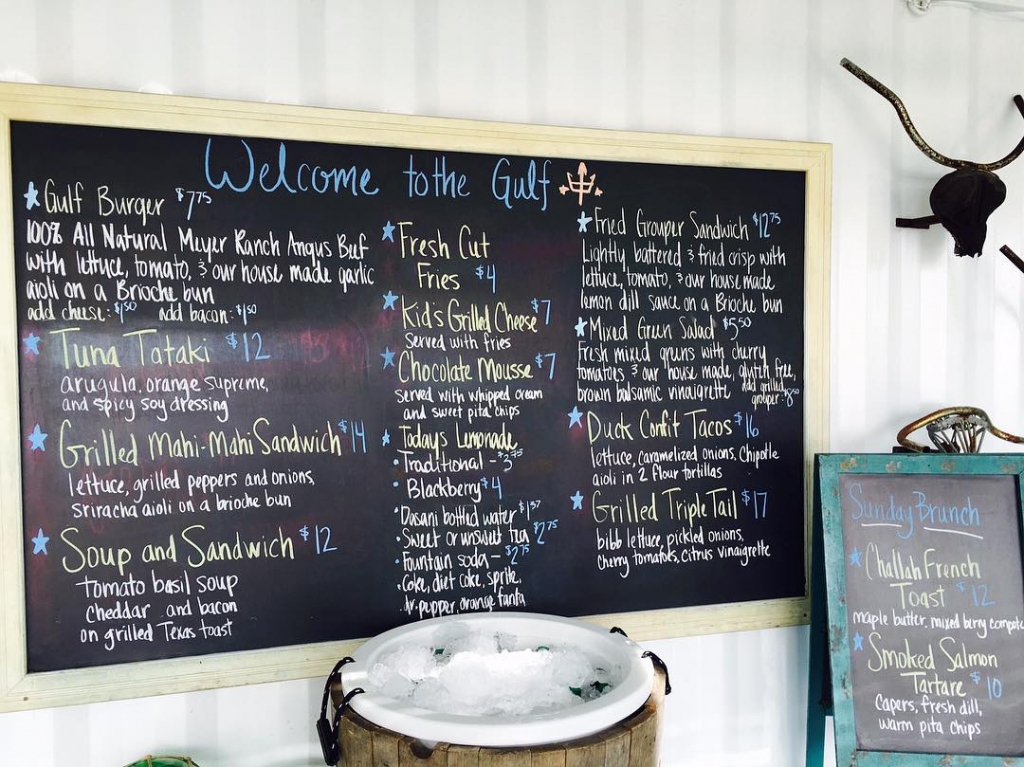 Welcome to the Gulf
Gulf Burger $7.75
100% All Natural Meyer Ranch Angus Beef
with lettuce, tomato, & our house made garlic
aioli on a Brioche bun
add cheese: $1.50 add bacon: $1.50
Tuna Tataki $12
arugula, orange supreme,
and spicy soy dressing
Grilled Mahi-Mahi Sandwich $14
lettuce, grilled peppers and onions,
sriracha aioli on a brioche bun
Soup and Sandwich $12
tomato basil soup
cheddar and bacon
on grilled Texas toast
Fresh Cut
Fries $4
Kid's Grilled Cheese $7
served with fries
Chocolate Mousse $7
served with whipped cream
and sweet pita chips
Todays Lemonade
Traditional -
Blackberry $4
Dasani bottled water
Sweet or unsweet tea $2.75
Fountain soda - $2.75
Coke, diet coke, sprite,
dr. pepper, orange fanta
Fried Grouper Sandwich $12.75
Lightly battered & fried crisp with
lettuce, tomato, & our house made
lemon dill sauce on a Brioche bun
Mixed Green Salad $5.50
Fresh mixed greens with cherry
tomatoes & our house made, gluten free,
brown balsamic vinaigrette
add grilled
grouper:
Duck Confit Tacos $16
lettuce, caramelized onions, Chipotle
aioli in 2 flour tortillas
Grilled Triple Tail $17
bibb lettuce, pickled onions,
cherry tomatoes, citrus vinaigrette
Sunday Brunch
Challah French
Toast $12
maple butter, mixed berry compote
Smoked Salmon
Tartare $10
Capers, fresh dill,
warm pita chips